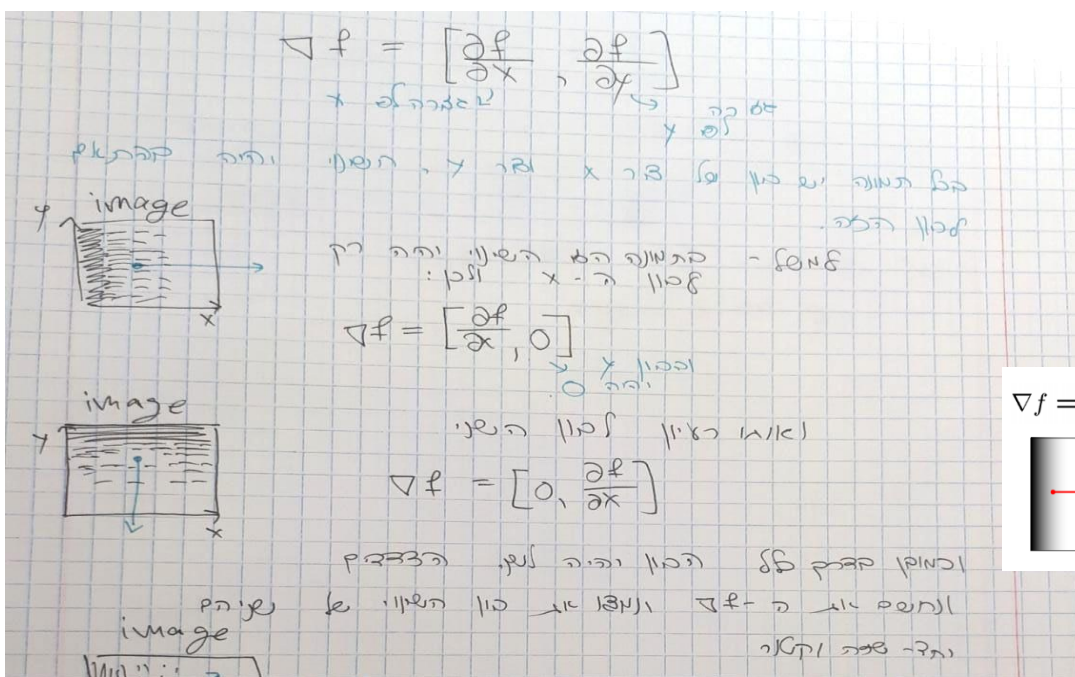 ∇f = [∂f/∂x , ∂f/∂y]
נגזרת לפי x
נגזרת
לפי y
בכל תמונה יש כיוון של ציר x וציר y, השינוי יהיה בהתאם
לכיוון הזה.
image
y
x
למשל - בתמונה הזו השינוי יהיה רק
לכיוון ה - x ולכן:
∇f = [∂f/∂x , 0]
ובכיוון y
יהיה 0.
image
y
x
ואותו רעיון לכיוון השני
∇f = [0, ∂f/∂x]
∇f =
וכמובן בדרך כלל הכיוון יהיה לשני הצדדים
ונחשב את ה -∇f ונמצא את כיוון השינוי של שניהם
יחד-
image